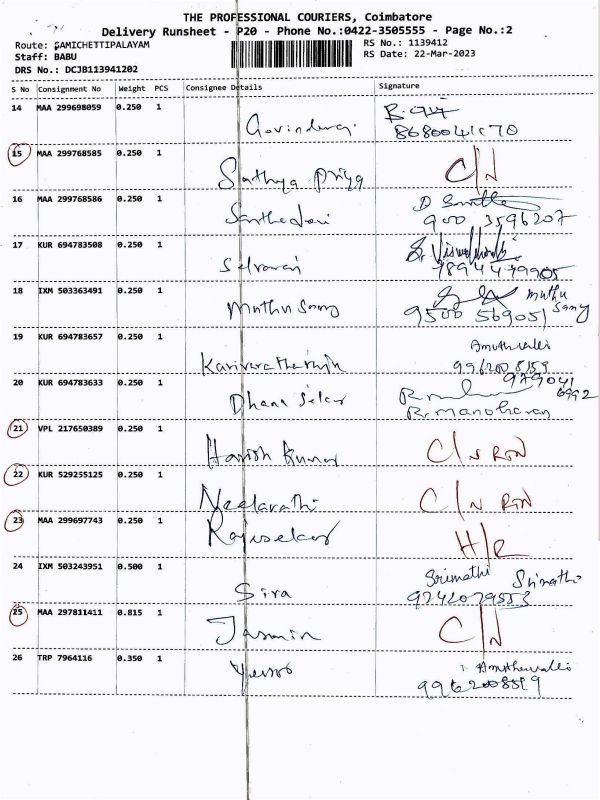 THE PROFESSIONAL COURIERS, Coimbatore
Delivery Runsheet - P20 - Phone No.:0422-3505555 - Page No.:2
Route: SAMICHETTIPALAYAM RS No.: 1139412
Staff: BABU RS Date: 22-Mar-2023
DRS No.: DCJB113941202
S No Consignment No Weight PCS Consignee Details Signature
14 MAA 299698059 0.250 1
Govinduraj
15 MAA 299768585 0.250 1
Sathya Priya C/N
16 MAA 299768586 0.250 1
Santhedevi 900 3596207
17 KUR 694783508 0.250 1
Selvaraj
18 IXM 503363491 0.250 1
Muthu Samy 9500 569051 muthu Samy
19 KUR 694783657 0.250 1
Amuthavalli
20 KUR 694783633 0.250 1
Dhana Sekar
R. Manoharan
21 VPL 217650389 0.250 1
Harish Kumar C/N RTN
22 KUR 529255125 0.250 1
Neelavathi C/N RTN
23 MAA 299697743 0.250 1
Rajasekar H/R
24 IXM 503243951 0.500 1
Srimathi Srimathi
Siva
25 MAA 297811411 0.815 1
Jasmin C/N
26 TRP 7964116 0.350 1
Amuthavalli